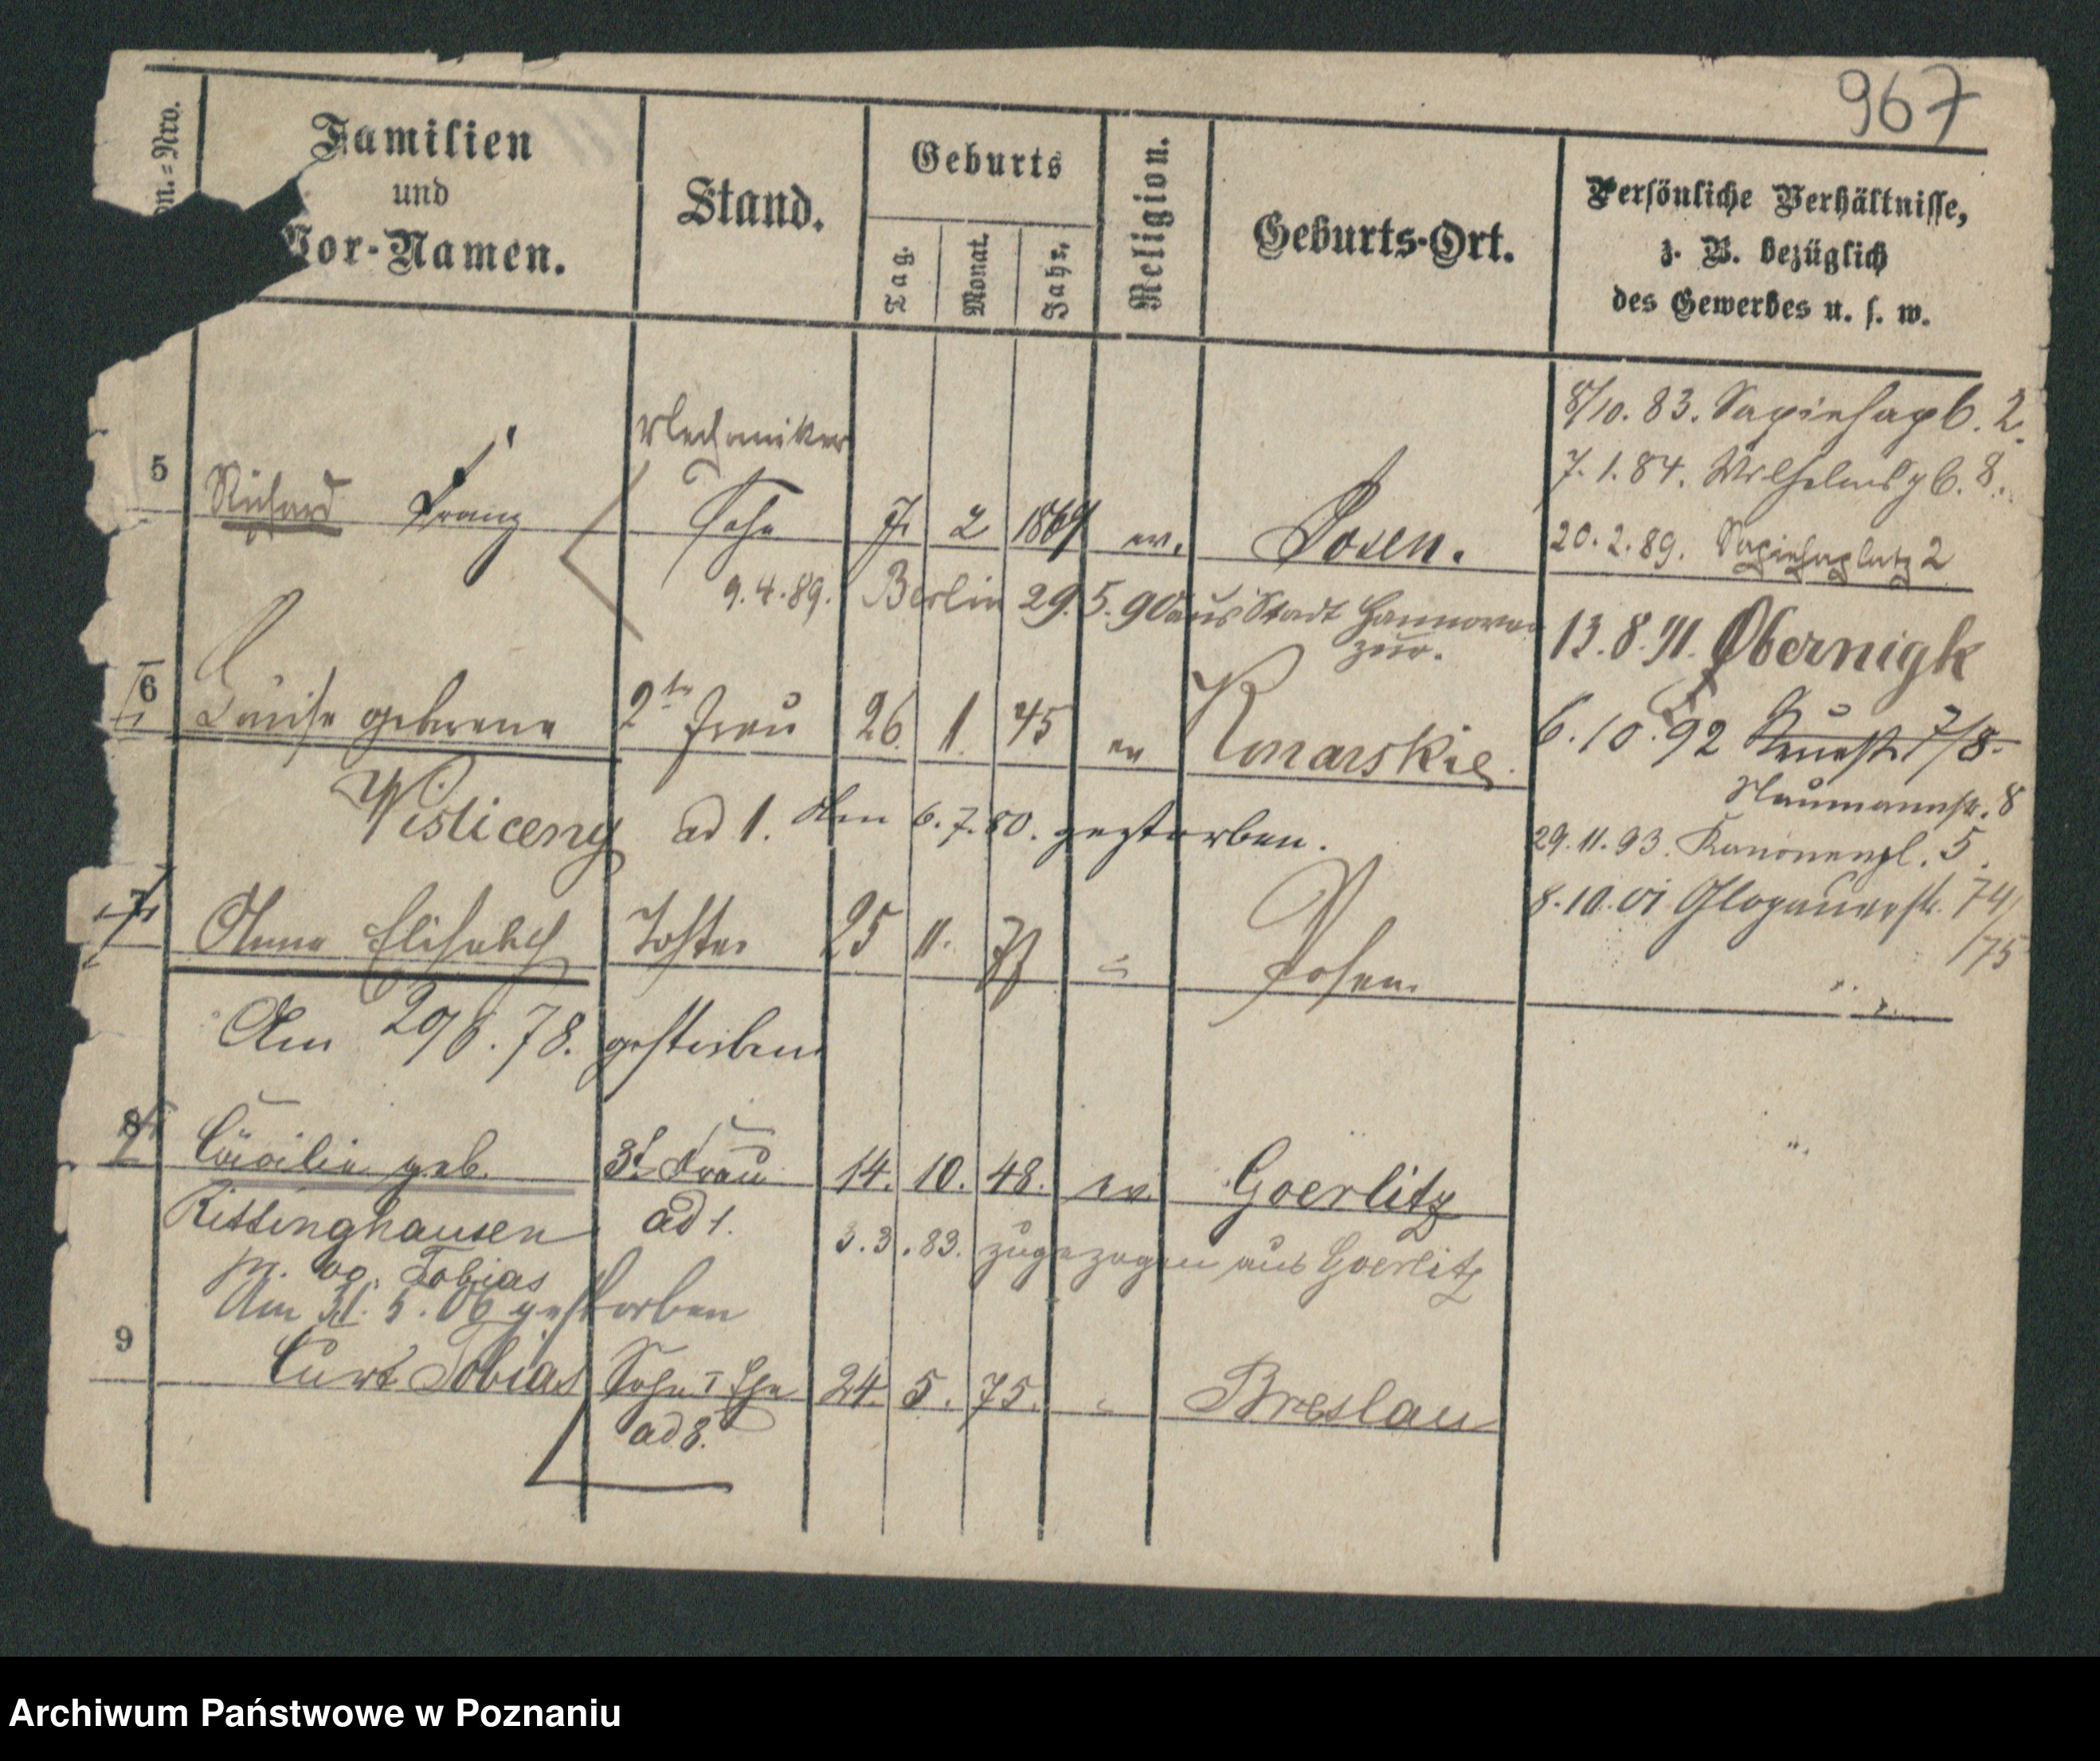 967
Familien
und
Vor-Namen.
Stand.
Geburts
Tag.
Monat.
Jahr.
Religion.
Geburts-Ort.
Persönliche Verhältnisse,
z. B. bezüglich
des Gewerbes u. s. w.
8/10. 83. Sapiehapl. 2.
7. 1. 84. Wilhelmspl. 8.
20. 2. 89. Sapiehaplatz 2
Mechaniker
5 Richard Franz Sohn 7. 2 1869 ev. Posen.
9. 4. 89. Berlin 29. 5. 90 aus Stadt Hannover
zur.
13. 8. 91. Obernigk
6 Louise geborene 2te Frau 26. 1. 45 ev Konarskie.
6. 10. 92 7/8.
Naumannstr. 8
Wisliceny ad 1. Am 6. 7. 80. gestorben.
29. 11. 93. Kanonenpl. 5.
8. 10. 01 Glogauerstr. 74/
75
7 Anna Elisabeth Tochter 25 11. Posen.
Am 20/6. 78. gestorben
8 Cäcilie geb. 3t. Frau 14. 10. 48. ev Goerlitz
Rittinghausen ad 1.
3. 3. 83. zugezogen aus Goerlitz
Tobias
Am 31. 5. 06 gestorben
9 Curt Tobias Sohn I Ehe 24. 5. 75. Breslau
ad 8.
Archiwum Państwowe w Poznaniu